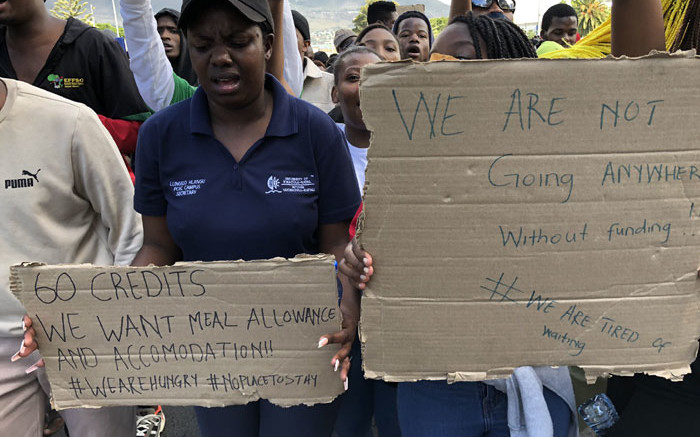 EFFSC
PUMA
PMC CAMPUS
SECRETARY
UNIVERSITY OF
60 CREDITS
WE WANT MEAL ALLOWANCE
AND ACCOMODATION!!
#WEAREHUNGRY #NOPLACETOSTAY
WE ARE NOT
Going ANYWHERE
Without funding..!
#WE ARE TIRED OF
waiting